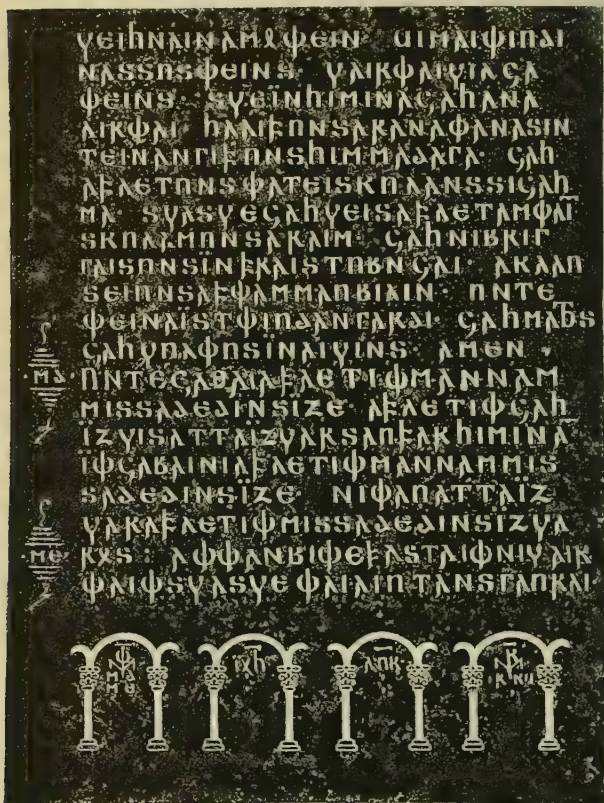 𐍅𐌴𐌹𐌷𐌽𐌰𐌹𐌽𐌰𐌼𐍉𐌸𐌴𐌹𐌽· 𐌵𐌹𐌼𐌰𐌹𐌸𐌹𐌿𐌳𐌹
𐌽𐌰𐍃𐍃𐌿𐍃𐌸𐌴𐌹𐌽𐍃· 𐍅𐌰𐌹𐍂𐌸𐌰𐌹𐍅𐌹𐌻𐌾𐌰
𐌸𐌴𐌹𐌽𐍃· 𐍃𐍅𐌴𐌹̈𐌽𐌷𐌹𐌼𐌹𐌽𐌰𐌾𐌰𐌷𐌰𐌽𐌰
𐌰𐌹𐍂𐌸𐌰𐌹· 𐌷𐌻𐌰𐌹𐍆𐌿𐌽𐍃𐌰𐍂𐌰𐌽𐌰𐌸𐌰𐌽𐌰𐍃𐌹𐌽
𐍄𐌴𐌹𐌽𐌰𐌽𐌲𐌹𐍆𐌿𐌽𐍃𐌷𐌹𐌼𐌼𐌰𐌳𐌰𐌲𐌰· 𐌾𐌰𐌷
𐌰𐍆𐌻𐌴𐍄𐌿𐌽𐍃𐌸𐌰𐍄𐌴𐌹𐍃𐌺𐌿𐌻𐌰𐌽𐍃𐍃𐌹𐌾𐌰𐌹
𐌼𐌰· 𐍃𐍅𐌰𐍃𐍅𐌴𐌾𐌰𐌷𐍅𐌴𐌹𐍃𐌰𐍆𐌻𐌴𐍄𐌰𐌼𐌸𐌰𐌹
𐍃𐌺𐌿𐌻𐌰𐌼𐌿𐌽𐍃𐌰𐍂𐌰𐌹𐌼· 𐌾𐌰𐌷𐌽𐌹𐌱𐍂𐌹𐌲
𐌲𐌰𐌹𐍃𐌿𐌽𐍃𐌹̈𐌽𐍆𐍂𐌰𐌹𐍃𐍄𐌿𐌱𐌽𐌾𐌰𐌹· 𐌰𐌺𐌻𐌰𐌿
𐍃𐌴𐌹𐌿𐌽𐍃𐌰𐍆𐌸𐌰𐌼𐌼𐌰𐌿𐌱𐌹𐌻𐌹𐌽· 𐌿𐌽𐍄𐌴
𐌸𐌴𐌹𐌽𐌰𐌹̈𐍃𐍄𐌸𐌹𐌿𐌳𐌰𐌽𐌲𐌰𐍂𐌳𐌹· 𐌾𐌰𐌷𐌼𐌰𐌷𐍄𐍃
𐌾𐌰𐌷𐍅𐌿𐌻𐌸𐌿𐍃𐌹̈𐌽𐌰𐌹𐍅𐌹𐌽𐍃· 𐌰𐌼𐌴𐌽·
·𐌼𐌳· 𐌿𐌽𐍄𐌴𐌾𐌰𐌱𐌰𐌹𐌰𐍆𐌻𐌴𐍄𐌹𐌸𐌼𐌰𐌽𐌽𐌰𐌼
𐌼𐌹𐍃𐍃𐌰𐌳𐌴𐌳𐌹𐌽𐍃𐌹𐌶𐌴· 𐌰𐍆𐌻𐌴𐍄𐌹𐌸𐌾𐌰𐌷
𐌹̈𐌶𐍅𐌹𐍃𐌰𐍄𐍄𐌰𐌹̈𐌶𐍅𐌰𐍂𐍃𐌰𐌿𐍆𐌰𐍂𐌷𐌹𐌼𐌹𐌽𐌰
𐌹̈𐌸𐌾𐌰𐌱𐌰𐌹𐌽𐌹𐌰𐍆𐌻𐌴𐍄𐌹𐌸𐌼𐌰𐌽𐌽𐌰𐌼𐌼𐌹𐍃
𐍃𐌰𐌳𐌴𐌳𐌹𐌽𐍃𐌹̈𐌶𐌴· 𐌽𐌹𐌸𐌰𐌿𐌰𐍄𐍄𐌰𐌹̈𐌶
𐍅𐌰𐍂𐌰𐍆𐌻𐌴𐍄𐌹𐌸𐌼𐌹𐍃𐍃𐌰𐌳𐌴𐌳𐌹𐌽𐍃𐌹̈𐌶𐍅𐌰
·𐌼𐌴· 𐍂𐍉𐍃: 𐌰𐌸𐌸𐌰𐌽𐌱𐌹𐌸𐌴𐍆𐌰𐍃𐍄𐌰𐌹𐌸𐌽𐌹𐍅𐌰𐌹𐍂
𐌸𐌰𐌹𐌸𐍃𐍅𐌰𐍃𐍅𐌴𐌸𐌰𐌹𐌻𐌹𐌿𐍄𐌰𐌽𐍃𐌲𐌰𐌿𐍂𐌰𐌹
𐌹𐍉𐌷 𐌻𐌿𐌺